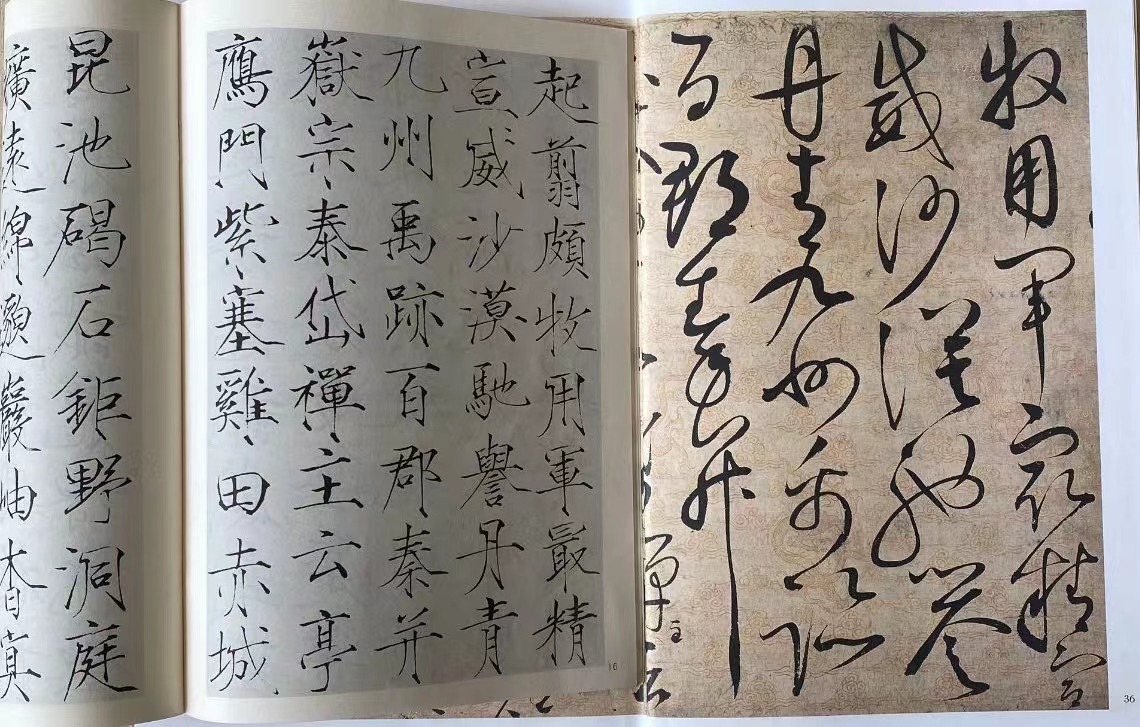 牧用軍最精宣
威沙漠馳譽
丹青九州禹跡
百郡秦并
36
起翦頗牧用軍最精
宣威沙漠馳譽丹青
九州禹跡百郡秦并
嶽宗泰岱禪主云亭
鴈門紫塞雞田赤城
昆池碣石鉅野洞庭
遠綿邈巖岫杳